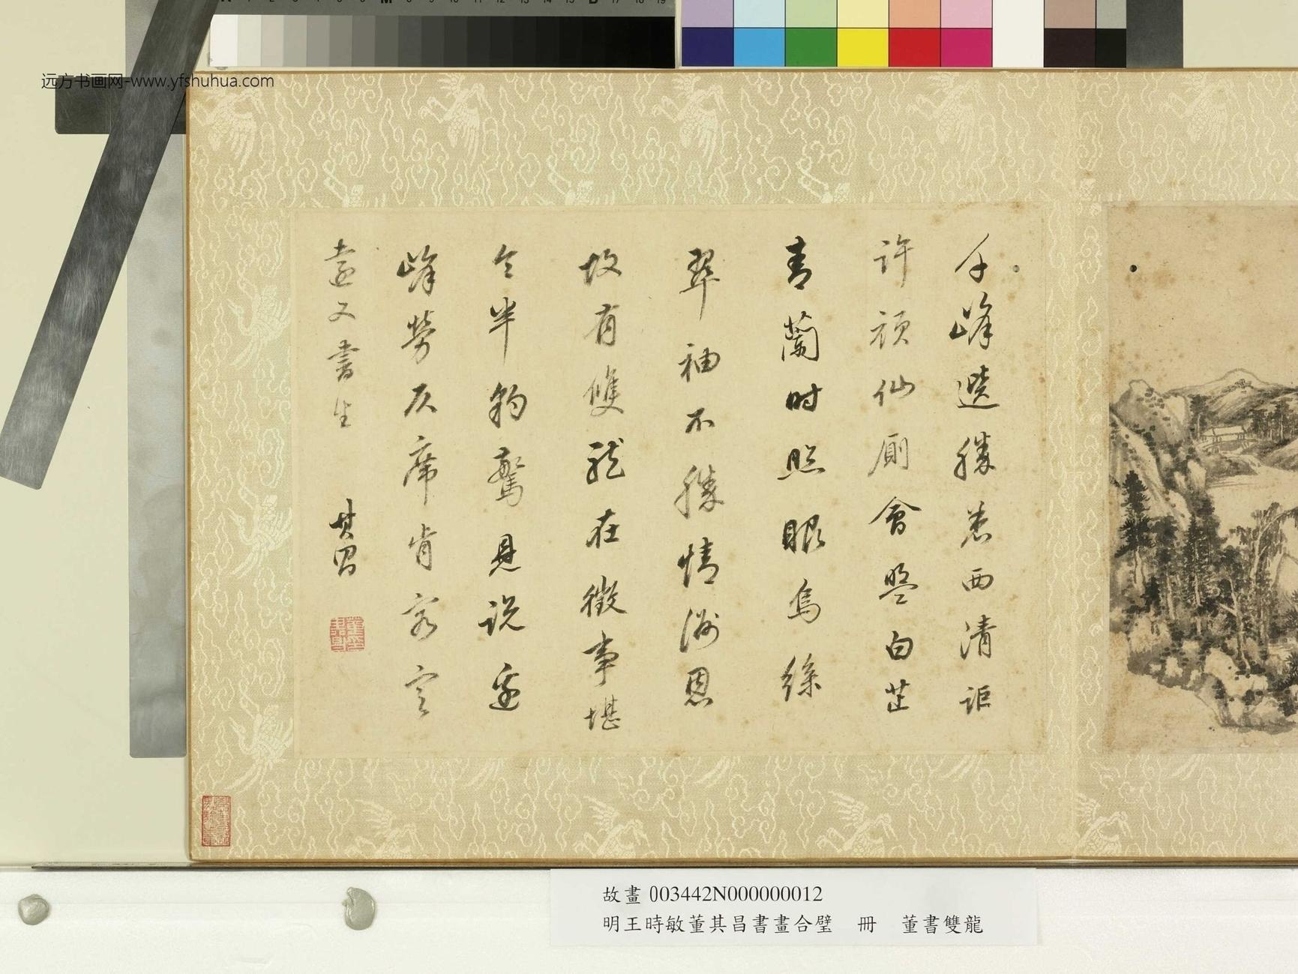 远方书画网-www.yfshuhua.com
千峰選勝悉西清詎
許頑仙厠會盟白芷
青蘭時照眼烏絲
翠袖不勝情酬恩
故有雙龍在徵事堪
令半豹驚見説
峰勞仄席肯容
又書生 其昌
故畫 003442N000000012
明王時敏董其昌書畫合璧 冊 董書雙龍